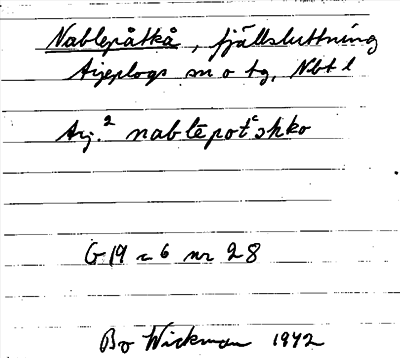 Nablepåtkå, fjällsluttning
Arjeplogs sn o tg, Nbt l
Arj.² nablēpotʿshko
G 19 a 6 nr 28
Bo Wickman 1942